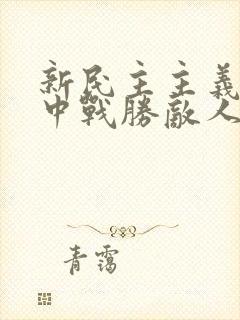 新民主主義
中戰勝敵人
青靄